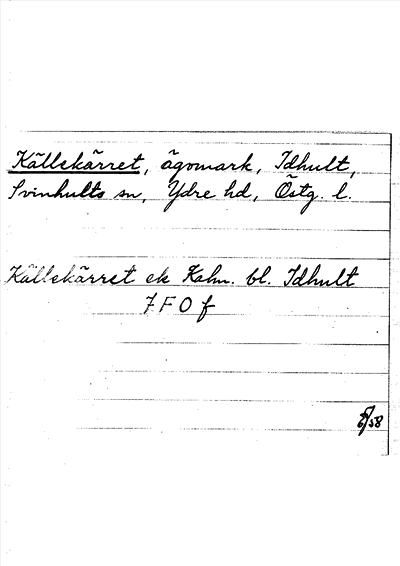 Källekärret, ägomark, Idhult,
Svinhults sn, Ydre hd, Östg. l.
Källekärret ek Kahn. bl. Idhult
7 F 0 f
58